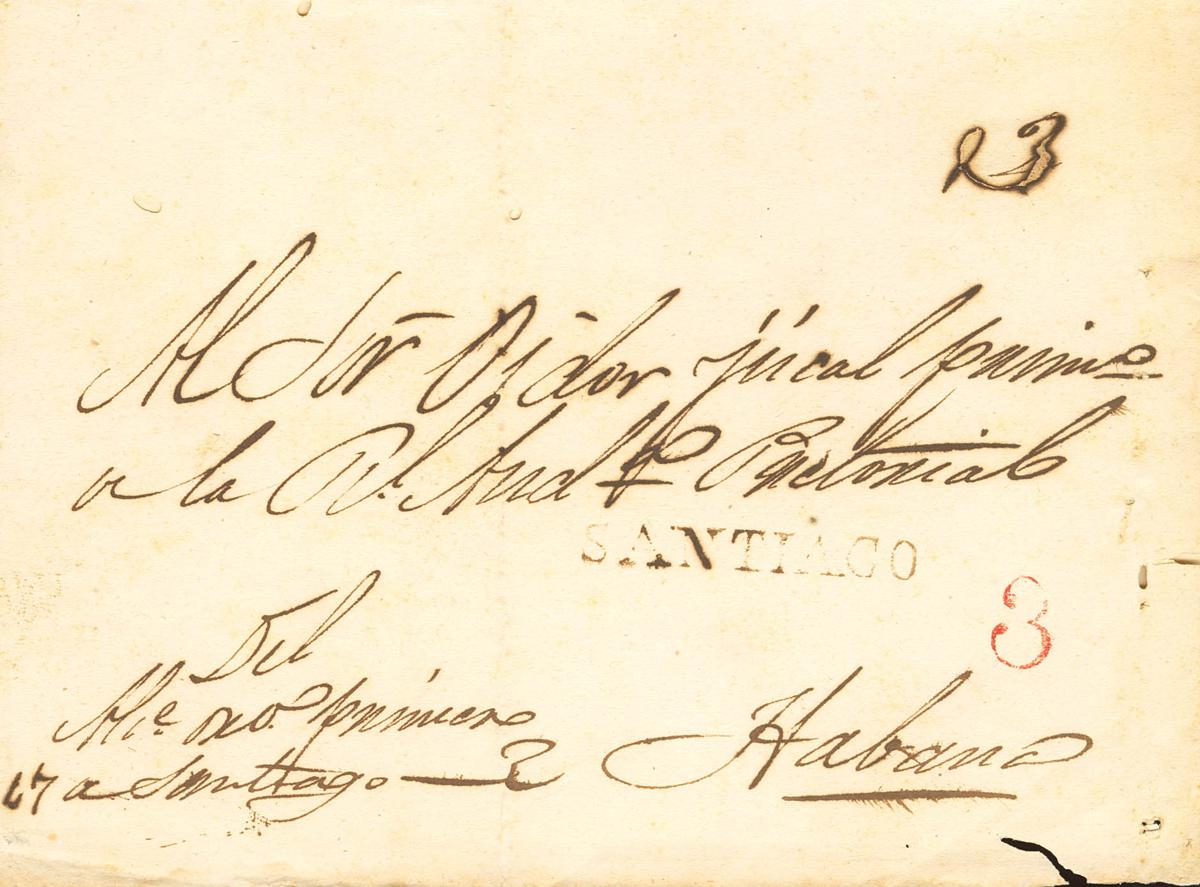 23
Al Sor Oidor fiscal primo
a la Rl. Aud Pretorial
SANTIAGO
3
Del
Alce. ordo. primero
17 a Santiago
Habana